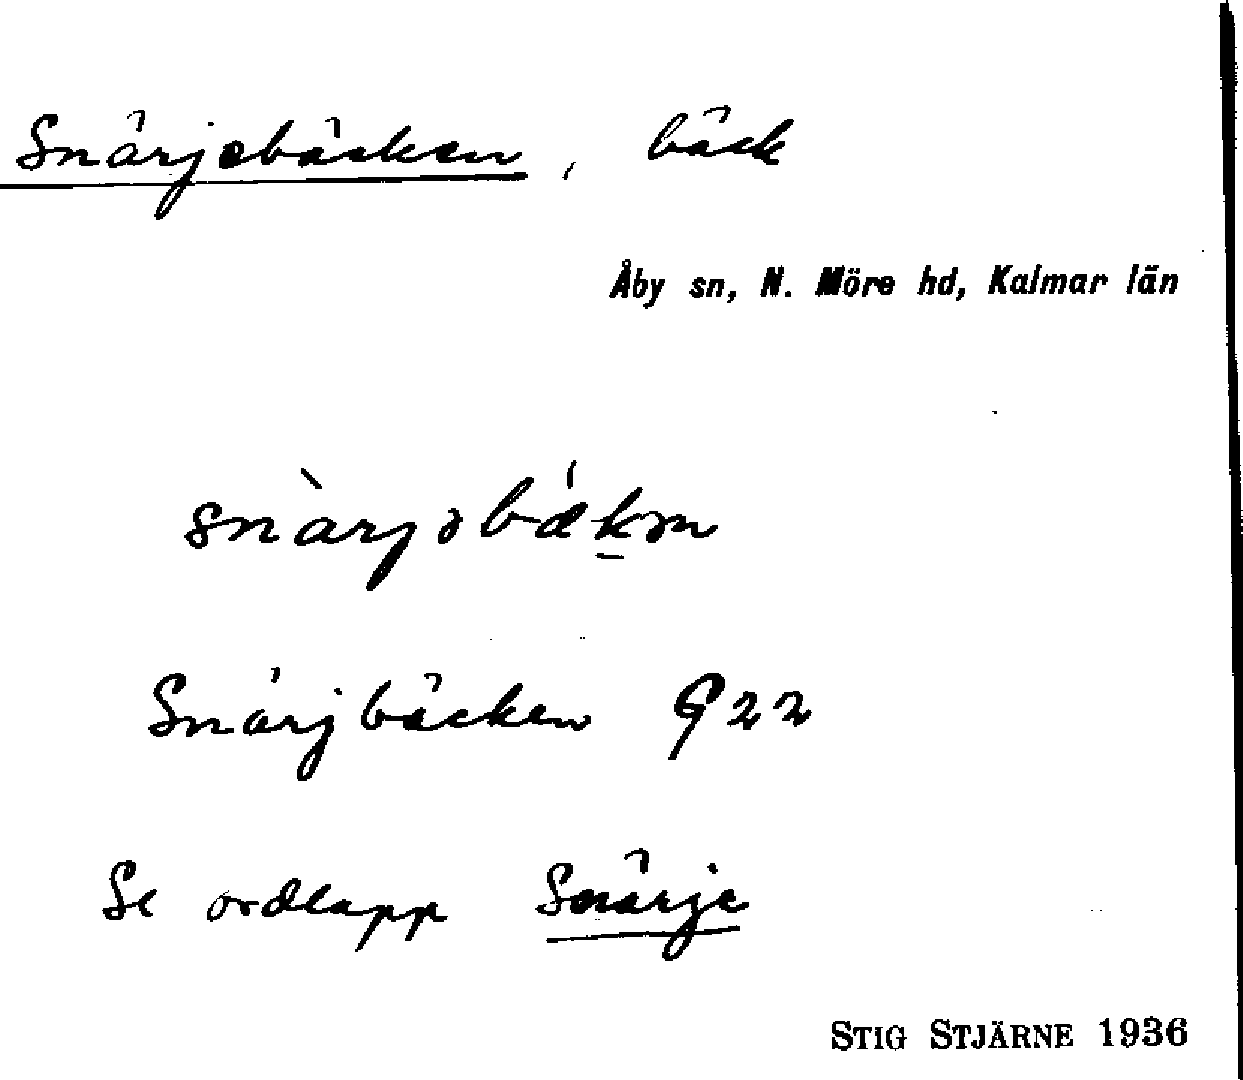 Snärjebäcken, bäck
Åby sn, N. Möre hd, Kalmar län
snàrjəbǽkən
Snärjbäcken G22
Se ordlapp Snärje
STIG STJÄRNE 1936